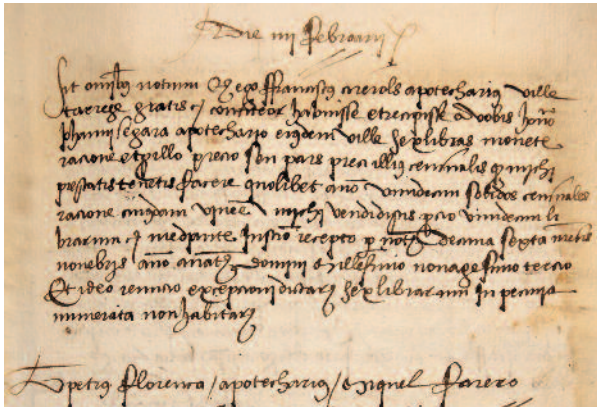 Die iiii febroarii
Sit omnibus notum q ego ffranciscus apothecarius ville
gratis et confiteor habuisse et recepisse a vobis
segara apothecario eiusdem ville sex libras monete
racione et precio seu pars precii illius censualis q michi
prestatis tenetis facere quolibet anno undecim solidos censuales
racione cuiusdam vinee michi vendidistis precio undecim li
brarum mediante recepto decima sexta mensis
anno domini Millesimo nonagesimo tercio
Et ideo renuncio excepcioni dictarum sex librarum in pecunia
numerata non habitarum
petrus florença / apothecarius / Miquel farero